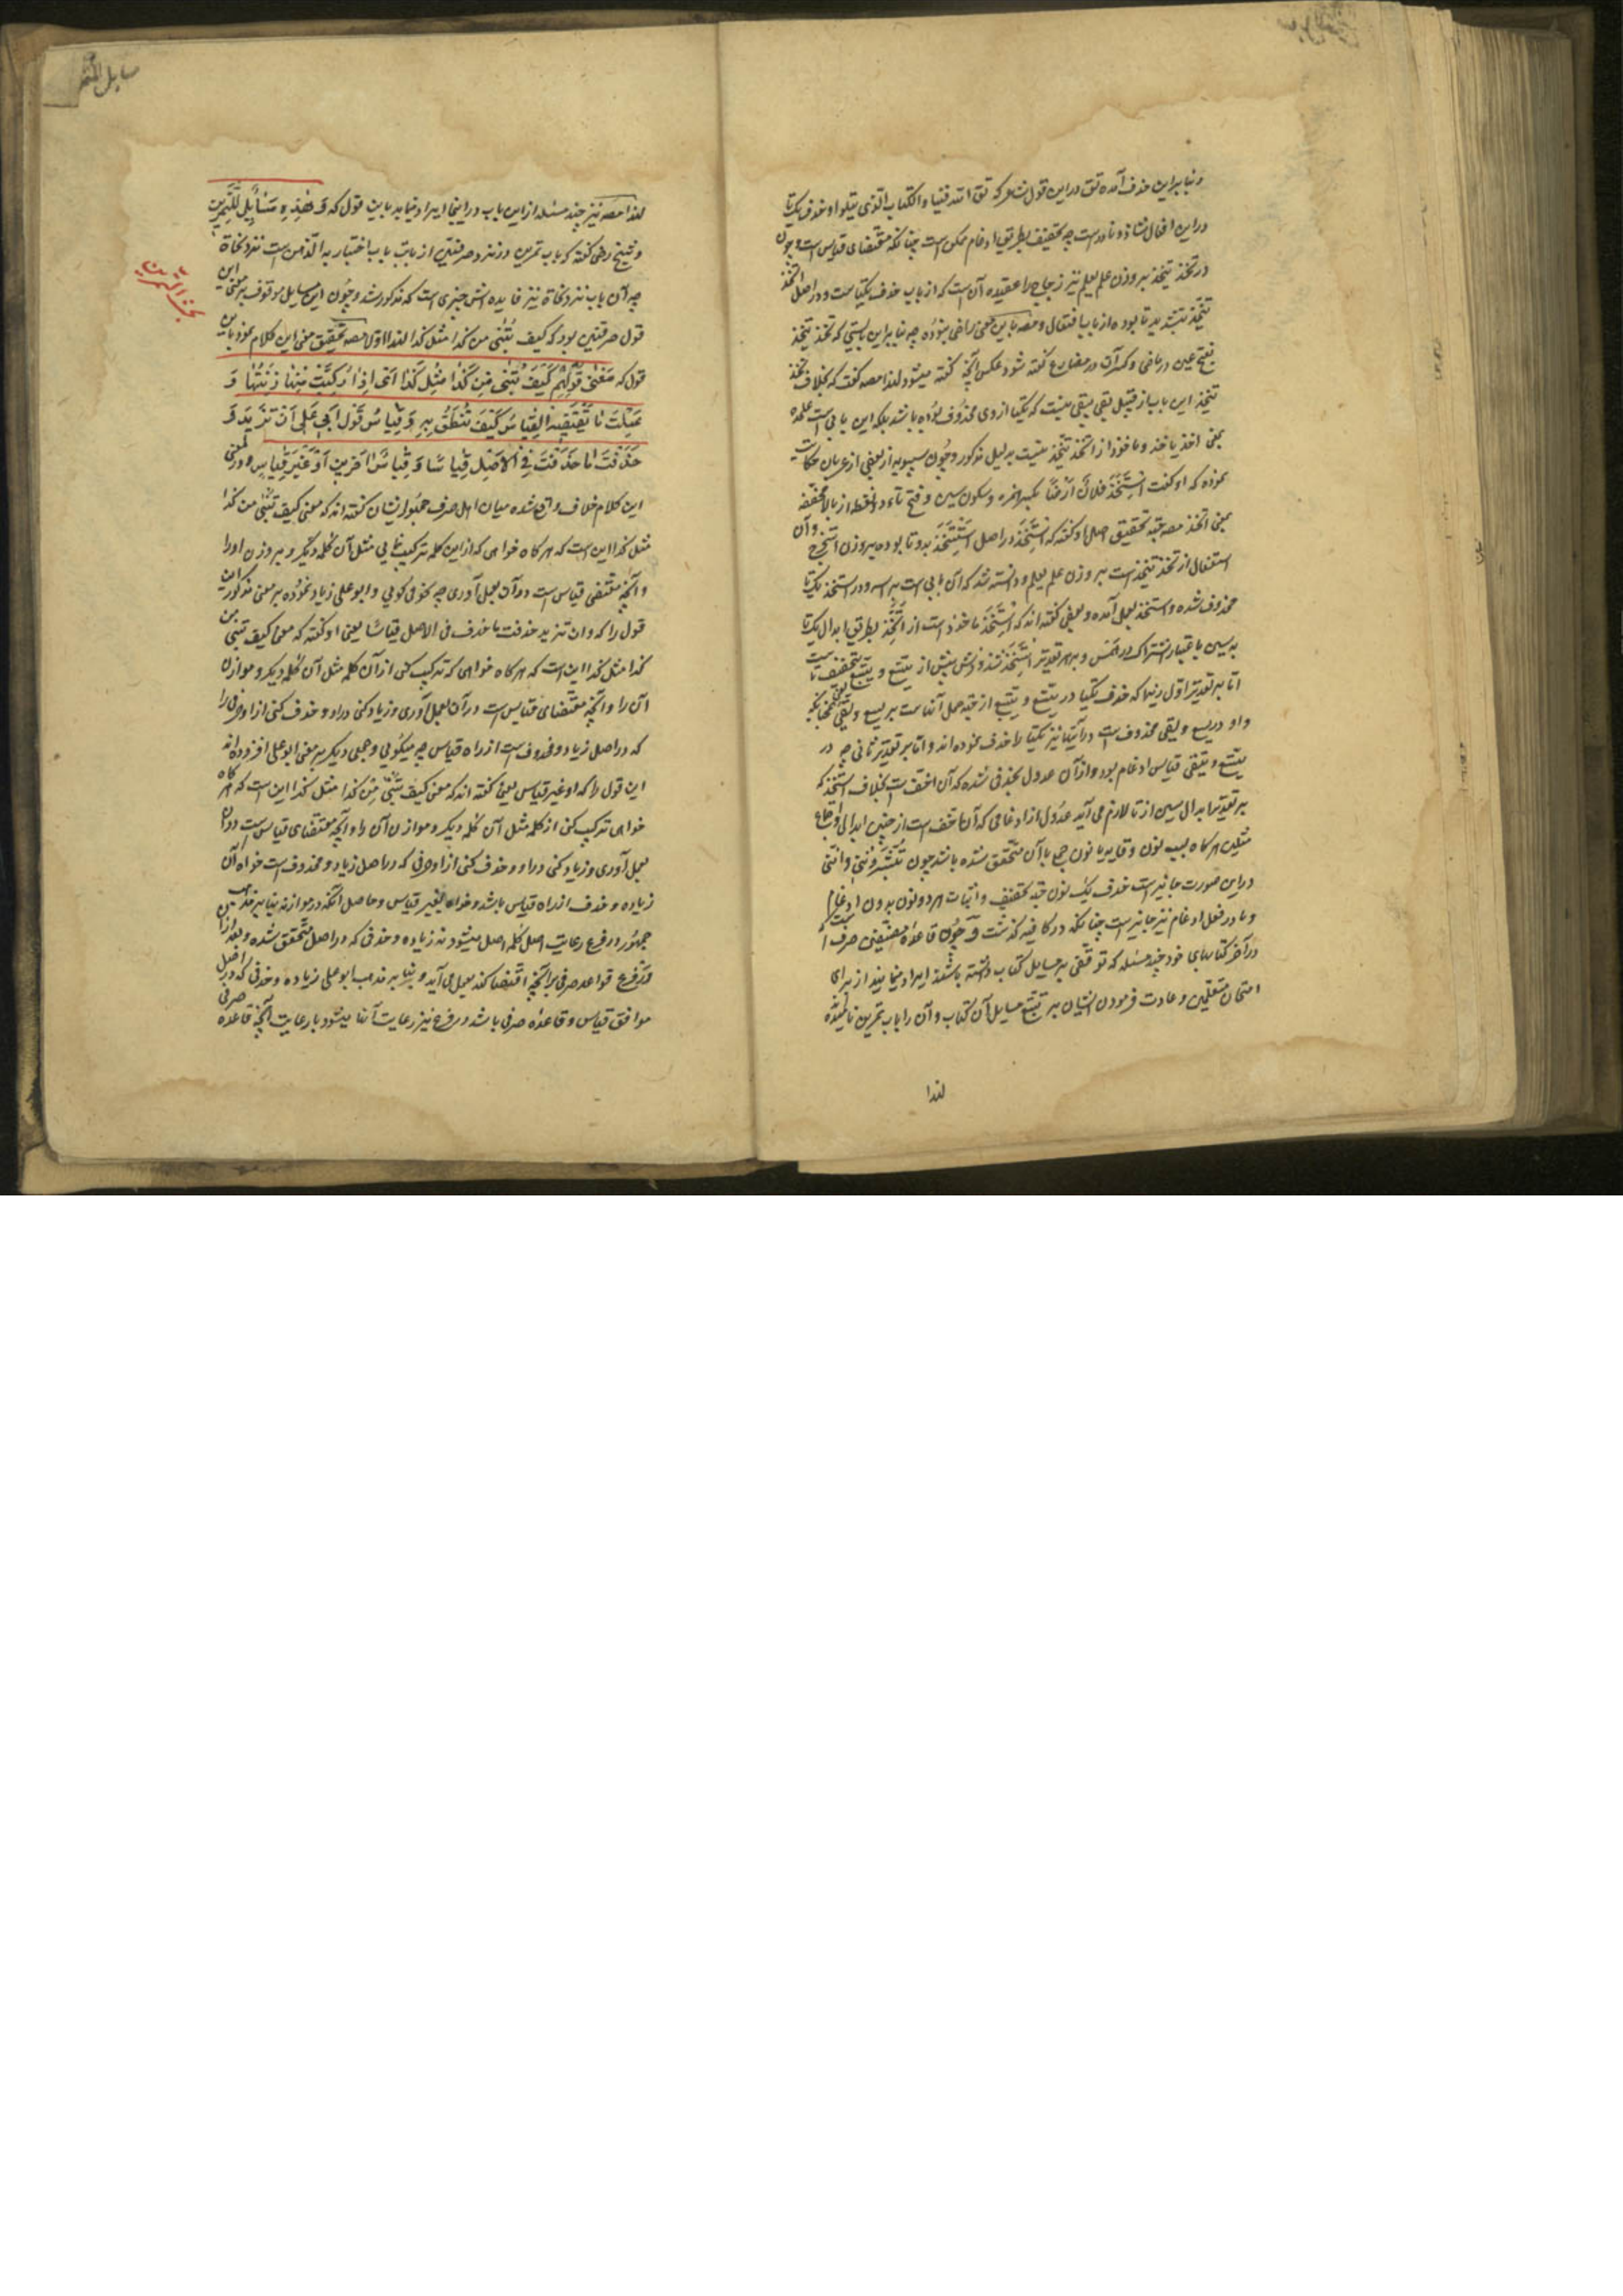 و بنابراین حذف آمده تق در این قول شاعر که تق الله فینا والکتاب الذی تتلو او حذف یک تا
در این افعال شاذ و نادر است چه تخفیف بطریق ادغام ممکن است چنانکه مقتضای قیاس است و چون
در تخذ یتخذ بر وزن علم یعلم نیز زجاج را عقیده آن است که از باب حذف یکتا ست و در اصل اتخذ
یتخذ بتشدید تا بوده از باب افتعال و مصه باین معنی راضی نبوده چه بنابراین بایستی که تخذ یتخذ
بفتح عین در ماضی و کسر آن در مضارع گفته شود عکس آنچه گفته میشود لهذا مصه گفت که بخلاف تخذ
یتخذ این باب از قبیل تقی یتقی نیست که یکتا از وی محذوف بوده باشد بلکه این بابی است علیحده
بمعنی اخذ یاخذ و ماخوذ از اتخذ یتخذ نیست بدلیل مذکور و چون سیبویه از بعضی از عربان حکایت
نموده که او گفت استخذ فلان ارضا بکسر همزه و سکون سین و فتح تاء دو نقطه از بالا مخففه
بمعنی اتخذ مصه جهة تحقیق اصل او گفته که استخذ در اصل استتخذ بدو تا بوده بر وزن استخرج و آن
استفعال از تخذ یتخذ است بر وزن علم یعلم و دانسته شد که آن بابی است بر سر و در استتخذ یک تا
محذوف شده و استخذ بعمل آمده و بعضی گفته اند که استخذ ماخوذ است از اتخذ بطریق ابدال یک تا
به سین باعتبار اشتراک در همس و بهر تقدیر استخذ شذوذش بیش از یتسع و یتقی بتخفیف تا ست
اما بر تقدیر اول زیرا که حذف یکتا در یتسع و یتقی از جهة حمل آنها ست بر یسع و یقی یعنی همچنانکه
واو در یسع و یقی محذوف است در آنها نیز یکتا را حذف نموده اند و اما بر تقدیر ثانی چه در
یتسع و یتقی قیاس ادغام بود و از آن عدول بحذفی شده که آن اخف است بخلاف استخذ که
بر تقدیر ابدال سین از تا لازم می آید عدول از ادغامی که آن اخف است از چنین ابدالی و اجتماع
مثلین هرگاه بسبب نون وقایه با نون جمع یا آن متحقق شده باشد چون تبشرونی و انی
در این صورت جایز است حذف یک نون جهة تخفیف و اثبات هر دو نون بدون ادغام
و در فعل ادغام نیز جایز است چنانکه در کافیه گذشت و چون قاعده مصنفین صرف است که
در آخر کتابهای خود چند مسئله که توقفی بر مسایل کتاب داشته باشند ایراد مینمایند از برای
امتحان متعلمین و عادت فرمودن ایشان بر تتبع مسایل آن کتاب و آن را باب تمرین نامیده
لهذا
مسایل التمرین
لهذا مصه نیز چند مسئله از این باب در اینجا ایراد مینماید باین قول که وَ هٰذِهِ مَسٰائِلُ التَّمْرینِ
و شیخ رضی گفته که باب تمرین در نزد صرفیین از بابت باب اختبار به الذی است نزد نحاة
چه آن باب نزد نحاة نیز فایده اش چیزی است که مذکور شد و چون این مسایل موقوف بر معنی این
قول صرفیین بود که کیف تبنی من کذا مثل کذا لهذا اولا مصه تحقیق معنی این کلام نمود باین
قول که مَعْنٰی قَوْلِهِمْ کَیْفَ تَبْنٰی مِنْ کَذٰا مِثْلَ کَذٰا اَیْ اِذٰا رَکَّبْتَ مِنْهٰا زِنَتَهٰا وَ
عَمِلْتَ مٰا یَقْتَضیهِ الْقِیٰاسُ کَیْفَ تَنْطِقُ بِهِ وَ قِیٰاسُ قَوْلِ اَبی عَلِی اَنْ تَزیدَ وَ
حَذَفْتَ مٰا حَذَفْتَ فِی الْاَصْلِ قِیٰاسًا وَ قِیٰاسُ آخَرینَ اَوْ غَیْرَ قِیٰاسٍ و در معنی
این کلام خلاف واقع شده میان اهل صرف جمهور ایشان گفته اند که معنی کیف تبنی من کذا
مثل کذا این است که هرگاه خواهی که از این کلمه ترکیب نمایی مثل آن کلمه دیگر و بر وزن او را
و آنچه مقتضی قیاس است در آن بعمل آوری چه نحو می گویی و ابو علی زیاد نموده بر معنی مذکور این
قول را که و ان تزید حذفت ما حذف فی الاصل قیاسا یعنی او گفته که معنی کیف تبنی من
کذا مثل کذا این است که هرگاه خواهی که ترکیب کنی از آن کلمه مثل آن کلمه دیگر و موازن
آن را و آنچه مقتضای قیاس است در آن بعمل آوری و زیاد کنی در او و حذف کنی از او حرفی را
که در اصل زیاد و محذوف است از راه قیاس چه میگویی و جمعی دیگر بر معنی ابو علی افزوده اند
این قول را که او غیر قیاس یعنی گفته اند که معنی کیف تبنی من کذا مثل کذا این است که هرگاه
خواهی ترکیب کنی از کلمه مثل آن کلمه دیگر و موازن آن را و آنچه مقتضای قیاس است در آن
بعمل آوری و زیاد کنی در او و حذف کنی از او حرفی که در اصل زیاد و محذوف است خواه آن
زیاده و حذف از راه قیاس باشد و خواه بغیر قیاس و حاصل آنکه در موازنه بنا بر مذهب
جمهور در فرع رعایت اصل کلمه اصل میشود نه زیاده و حذفی که در اصل متحقق شده و بعد از آن
در فرع قواعد صرفی هر آنچه اقتضا کند بعمل می آید و بنا بر مذهب ابو علی زیاده و حذفی که در اصل
موافق قیاس و قاعده صرفی باشد در فرع نیز رعایت آنها میشود با رعایت آنچه قاعده صرفی